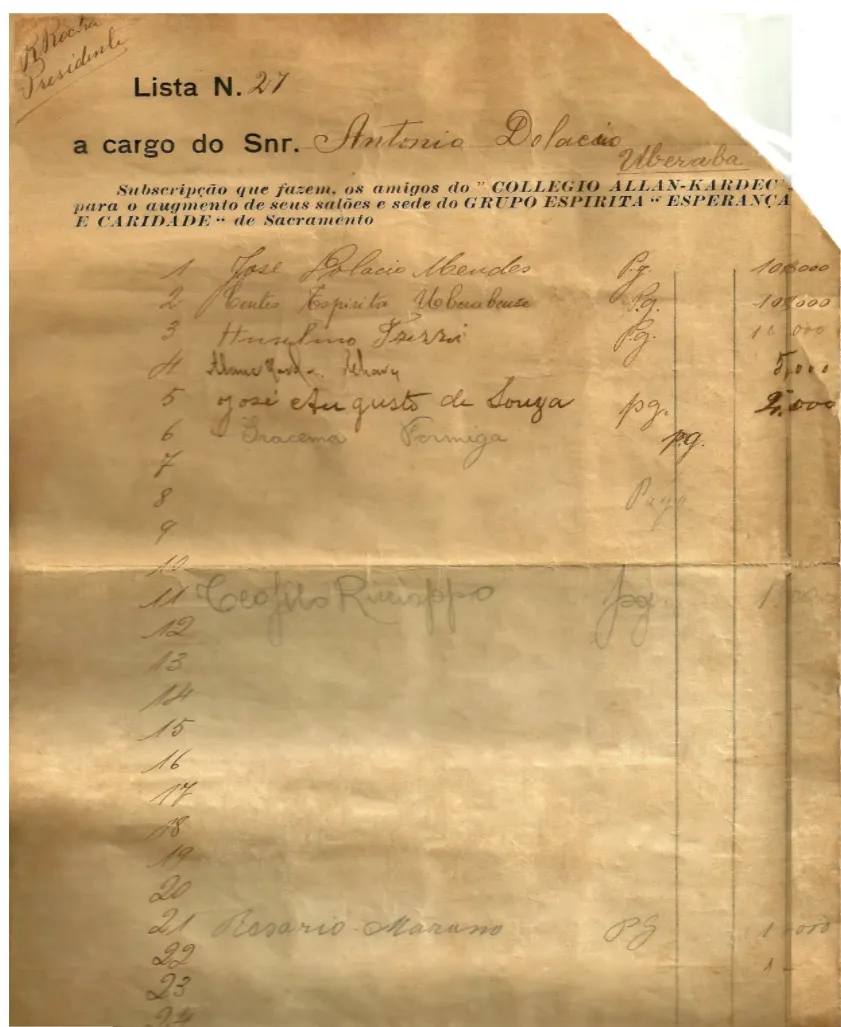 R Rocha
Presidente
Lista N. 27
a cargo do Snr. Antonio
Uberaba
Subscripção que fazem, os amigos do " COLLEGIO ALLAN-KARDEC",
para o augmento de seus salões e sede do GRUPO ESPIRITA " ESPERANÇA
E CARIDADE " de Sacramento
1 José Mendes Pg. 10,000
2 Espirita Uberabense Pg. 10,000
3 Anselmo Trezzi Pg. 10,000
4 5,000
5 José Augusto de Souza pg. 2,000
6 Iracema Formiga pg.
7
8 Pago
9
10
11 Teofilo pg.
12
13
14
15
16
17
18
19
20
21 Rosario Marano PG 1 000
22
23
24